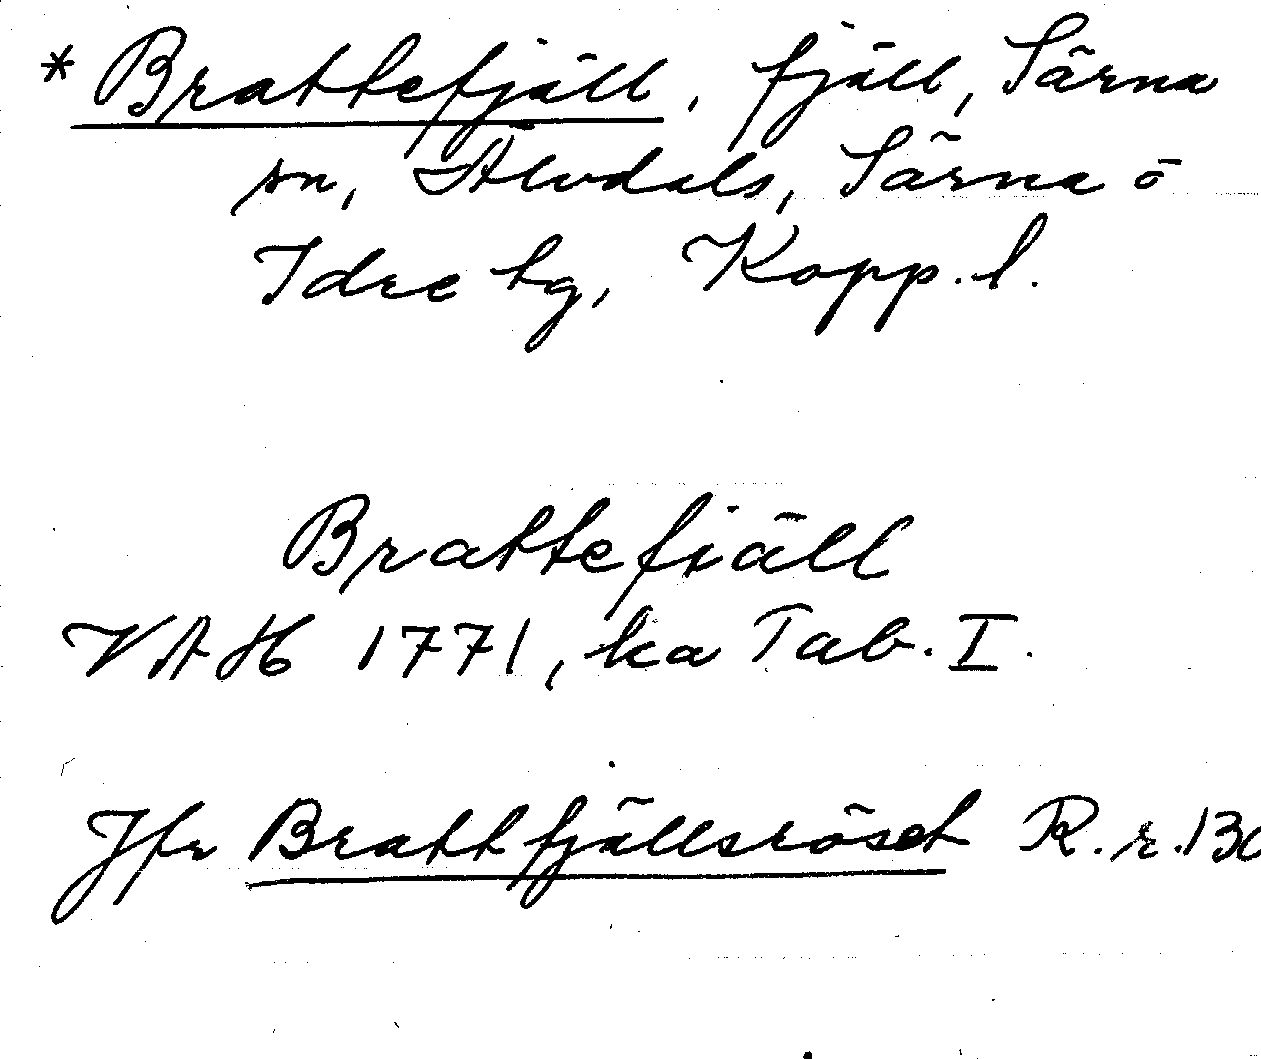 * Brattefjäll, fjäll, Särna
sn, Älvdals, Särna o
Idre tg, Kopp. l.
Brattefiäll
VAH 1771, ka Tab. I.
Jfr Brattfjällsröset R.r.